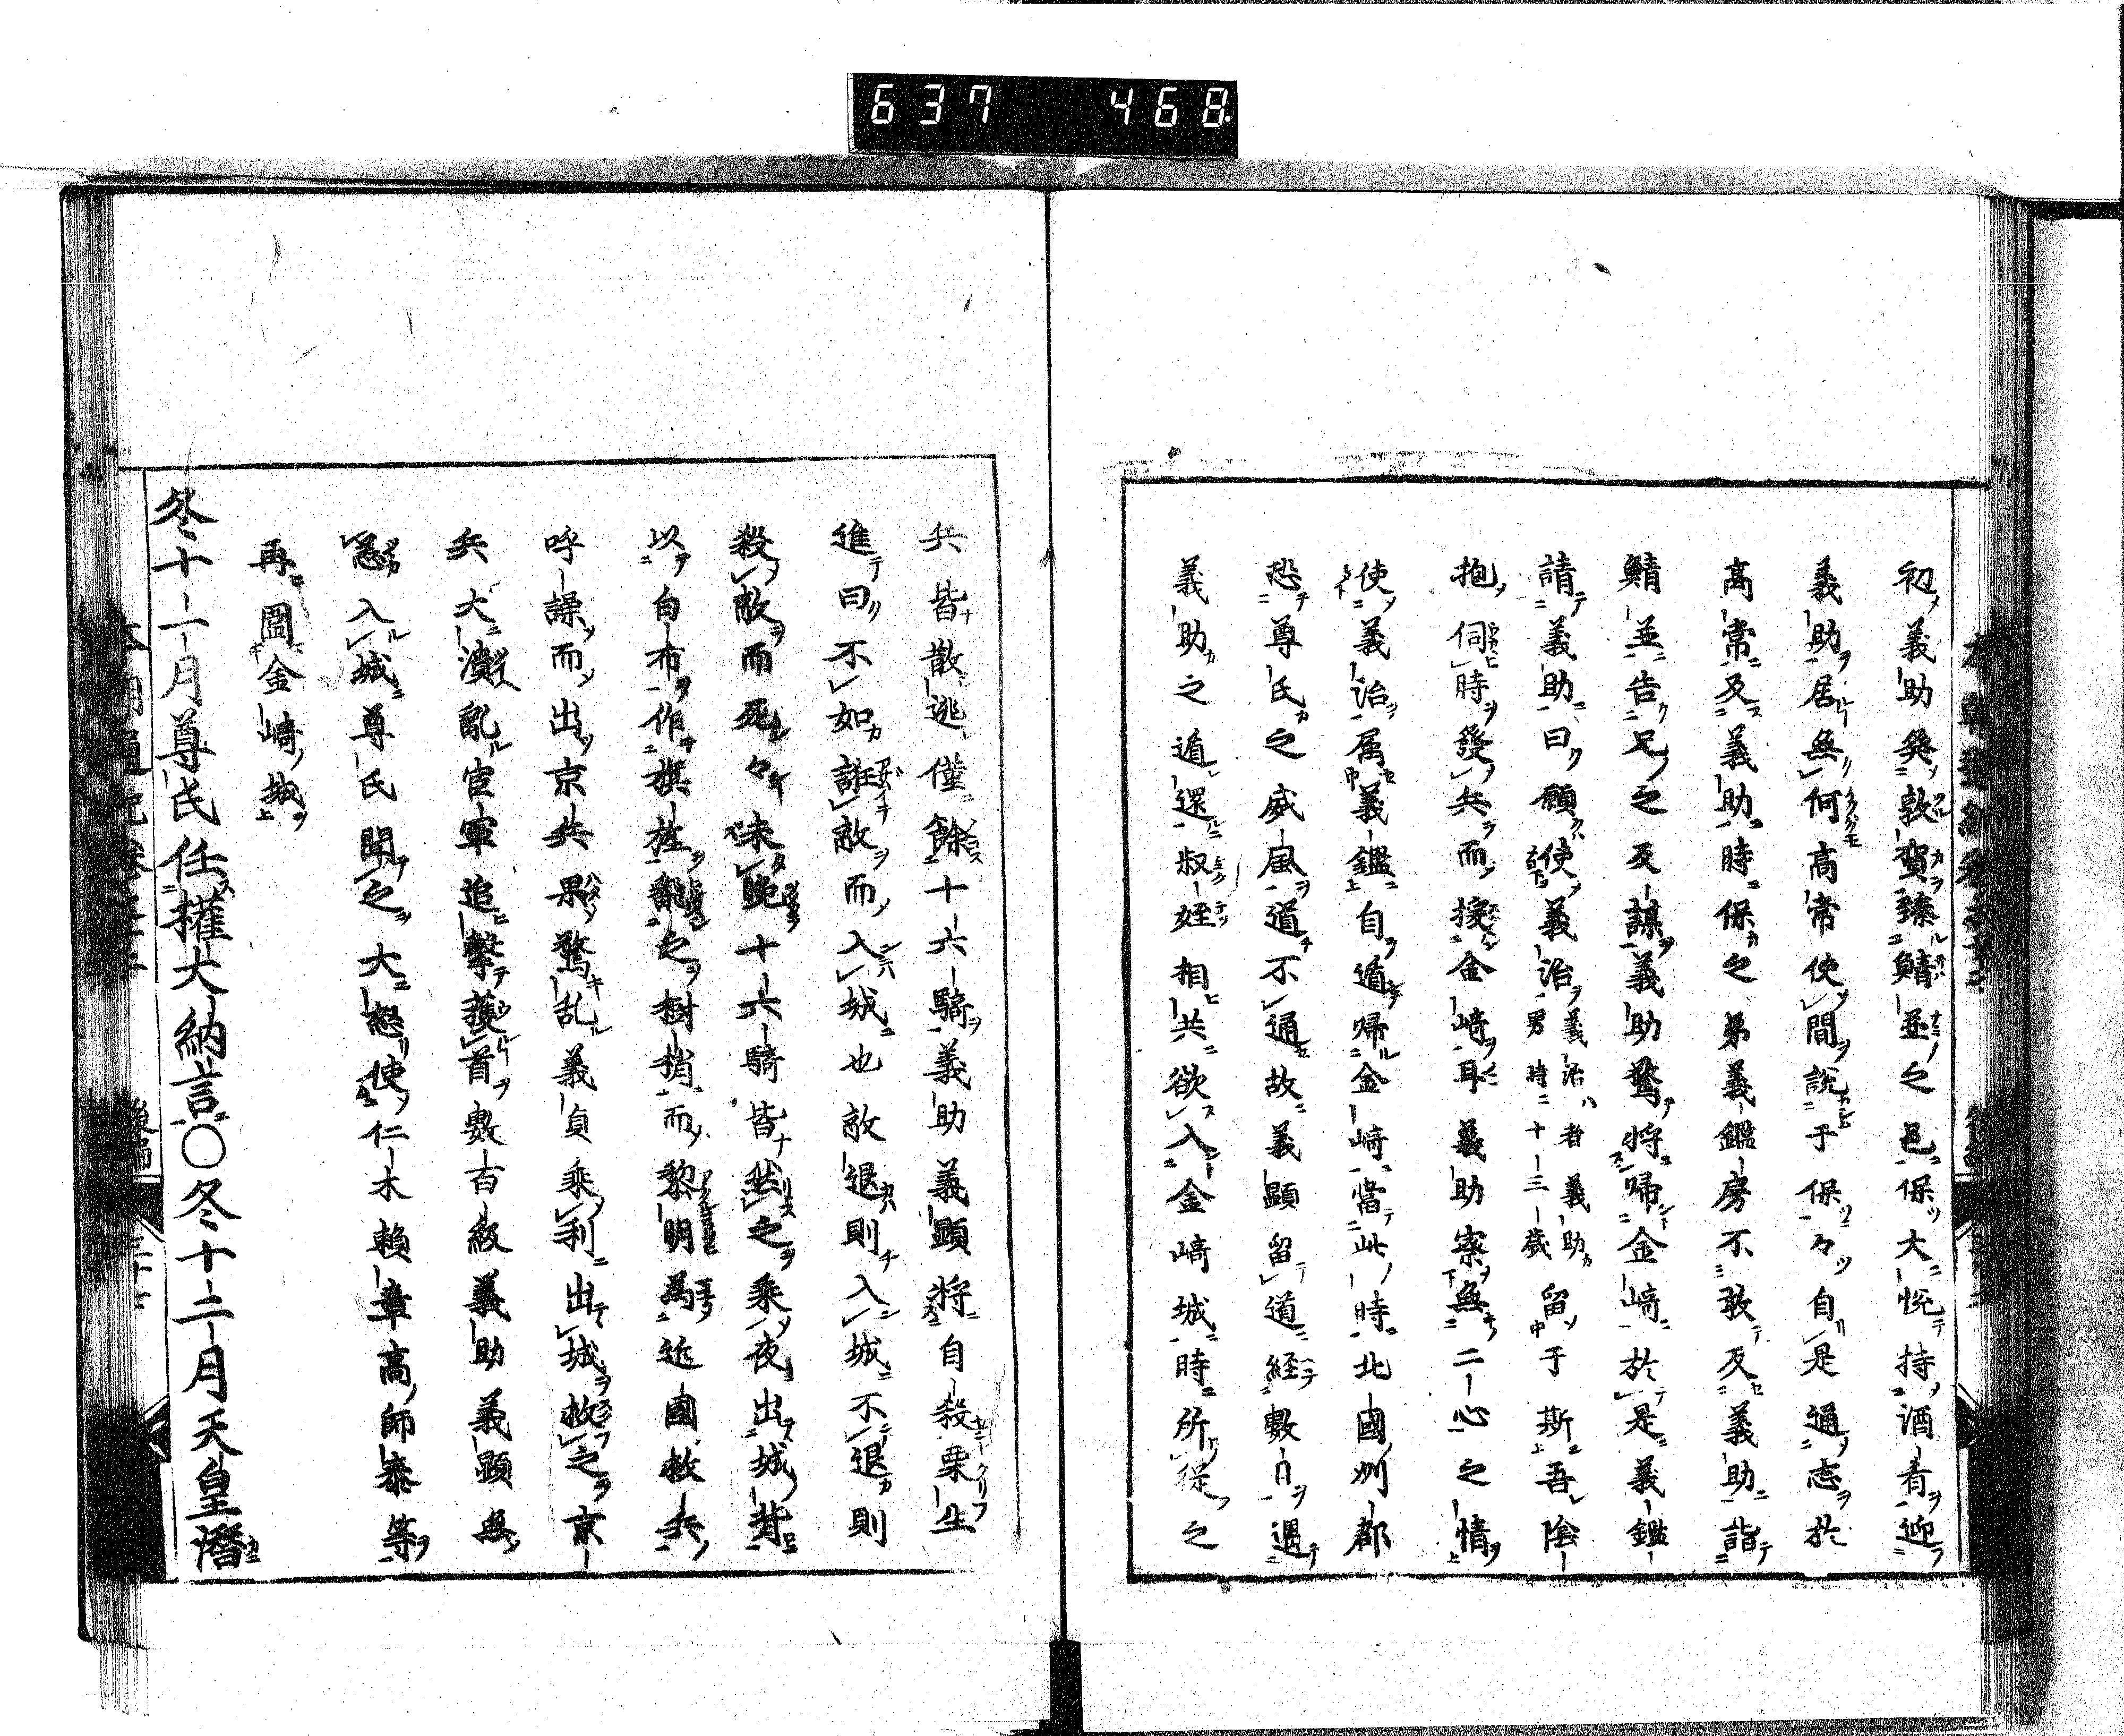 637 468
初義助發敦賀臻鯖並之邑保大悅持酒肴迎
義助居無何高常使間說于保々自是通志於
高常及義助時保之弟義鑑房不敢反義助詣
鯖並告兄之反謀義助驚將帰金﨑於是義鑑
請義助曰願使義治義治者義助男時十三歳留于斯吾陰
抱伺時發兵而援金﨑耳義助察無二心之情
使義治属義鑑自遁帰金﨑當此時北國州郡
恐尊氏之威風道不通故義顕留道経數日遇
義助之遁還叔姪相共欲入金﨑城時所從之
兵皆散逃僅餘十六騎義助義顕将自殺栗生
進曰不如誑敵而入城也敵退則入城不退則
殺敵而死々未晩十六騎皆然之乘夜出城背
以白布作旗旌翻之樹梢而黎明為近國救兵
呼譟而出京兵果驚乱義貞乘利出城救之京
兵大潰亂官軍追撃獲首數百級義助義顕無
恙入城尊氏聞之大怒使仁木頼章高師泰等
再圍金﨑城
冬十一月尊氏任權大納言〇冬十二月天皇潛